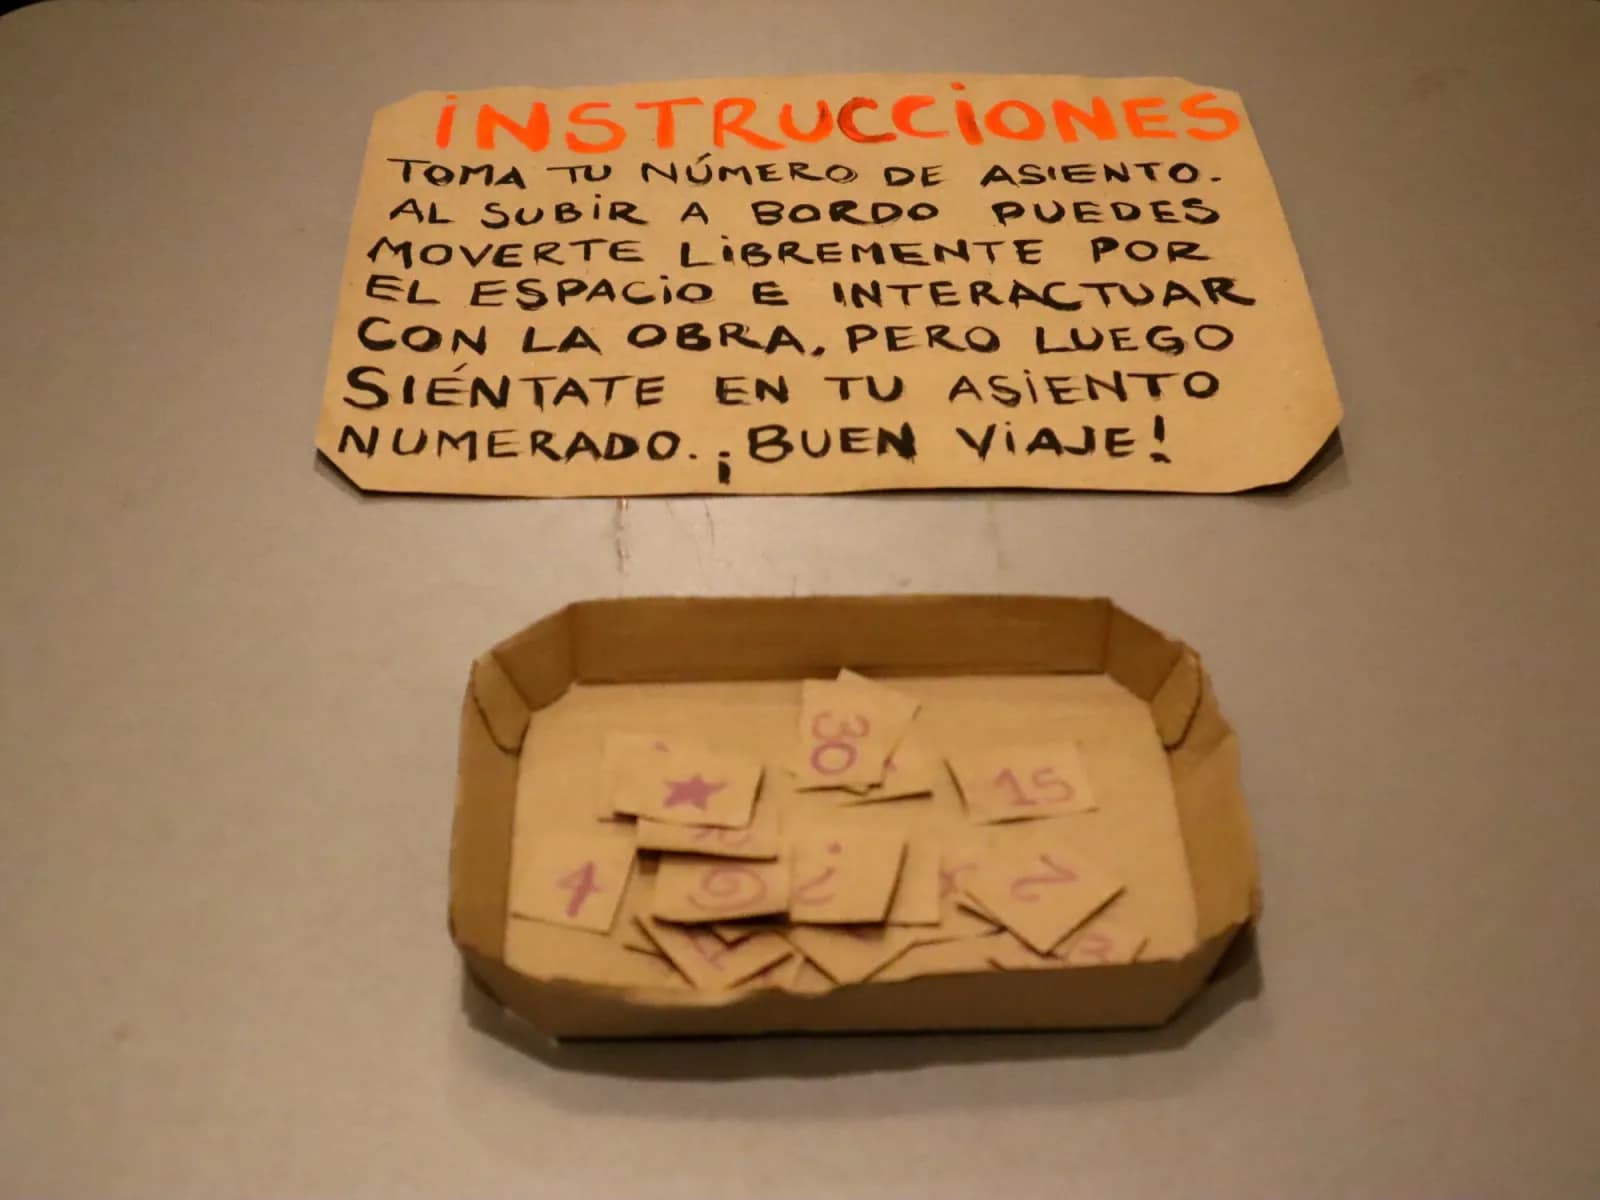 iNSTRUCCiONES
TOMA TU NÚMERO DE ASIENTO.
AL SUBiR A BORDO PUEDES
MOVERTE LiBREMENTE POR
EL ESPACiO E INTERACTUAR
CON LA OBRA, PERO LUEGO
SIÉNTATE EN TU ASiENTO
NUMERADO. ¡BUEN ViAJE!
30
15
4
¿
2